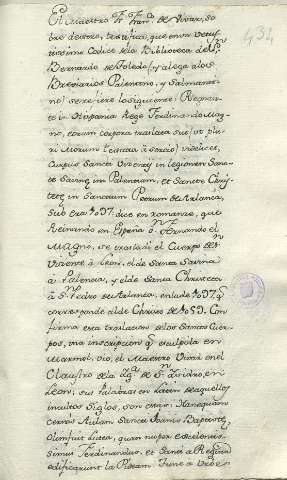 El Maestro Fr. Franco. de Vivar, so
bre dextro, testifica, que en un Vetus
tissimo Codice de la Biblioteca de Sn.
Bernardo de Toledo (y alega a los
Breviarios Palentino, y Salmanti
no) se refiere lo siguiente: Regnan
te in Hispania Rege Ferdinando Mag
no, eorum corpora traslata sunt
videlicet,
Corpus Sancti Vicenty in legionem Sanc
te Savine in Palentiam, et Sancte Chris
tete in Sanctum Petrum de Arlanca,
sub era 1097. dice en romanze, que
Reinando en España Dn. Fernando el
Magno, se trasladó el Cuerpo de Sn.
Vicente á Leon, el de Santa Savina
á Palencia, y el de Santa Christeta
á Sn. Pedro de Arlanca, en la de 1097. q.
corresponde al de Christo de 1059. Con
firma esta traslacion de los Santos Cuer
pos, una inscripcion q. esculpida en
Marmol, vio, el Maestro Vivar en el
Claustro de la Ygª. de Sn. Isidro, en
Leon; sus Palabras en Latin de aquellos
incultos Siglos, son estas: Hanc quam
cernis Aulam Sancti Joanis Baptiste,
olim fuit lutea, quam nuper excelentis
simus Ferdinandus, et Sancia Regina
edificarunt lapideam. Tunc a Urbe
434